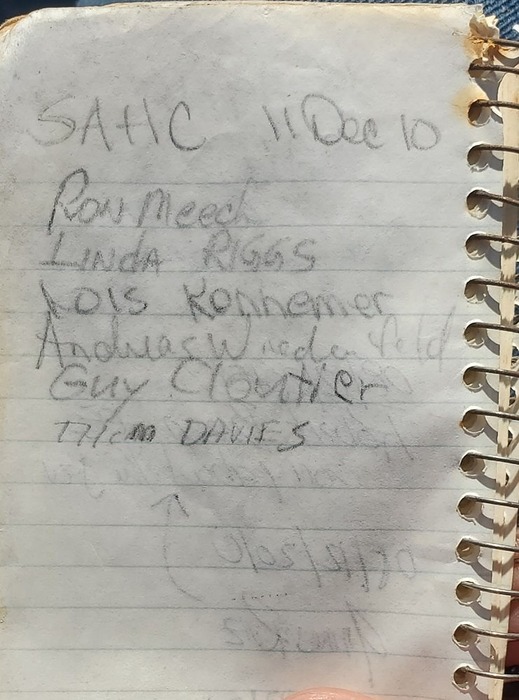 SAHC 11 Dec 10
Ron Meech
LINDA RIGGS
LOIS Konnemer
Andreas
Guy Cloutier
DAVIES